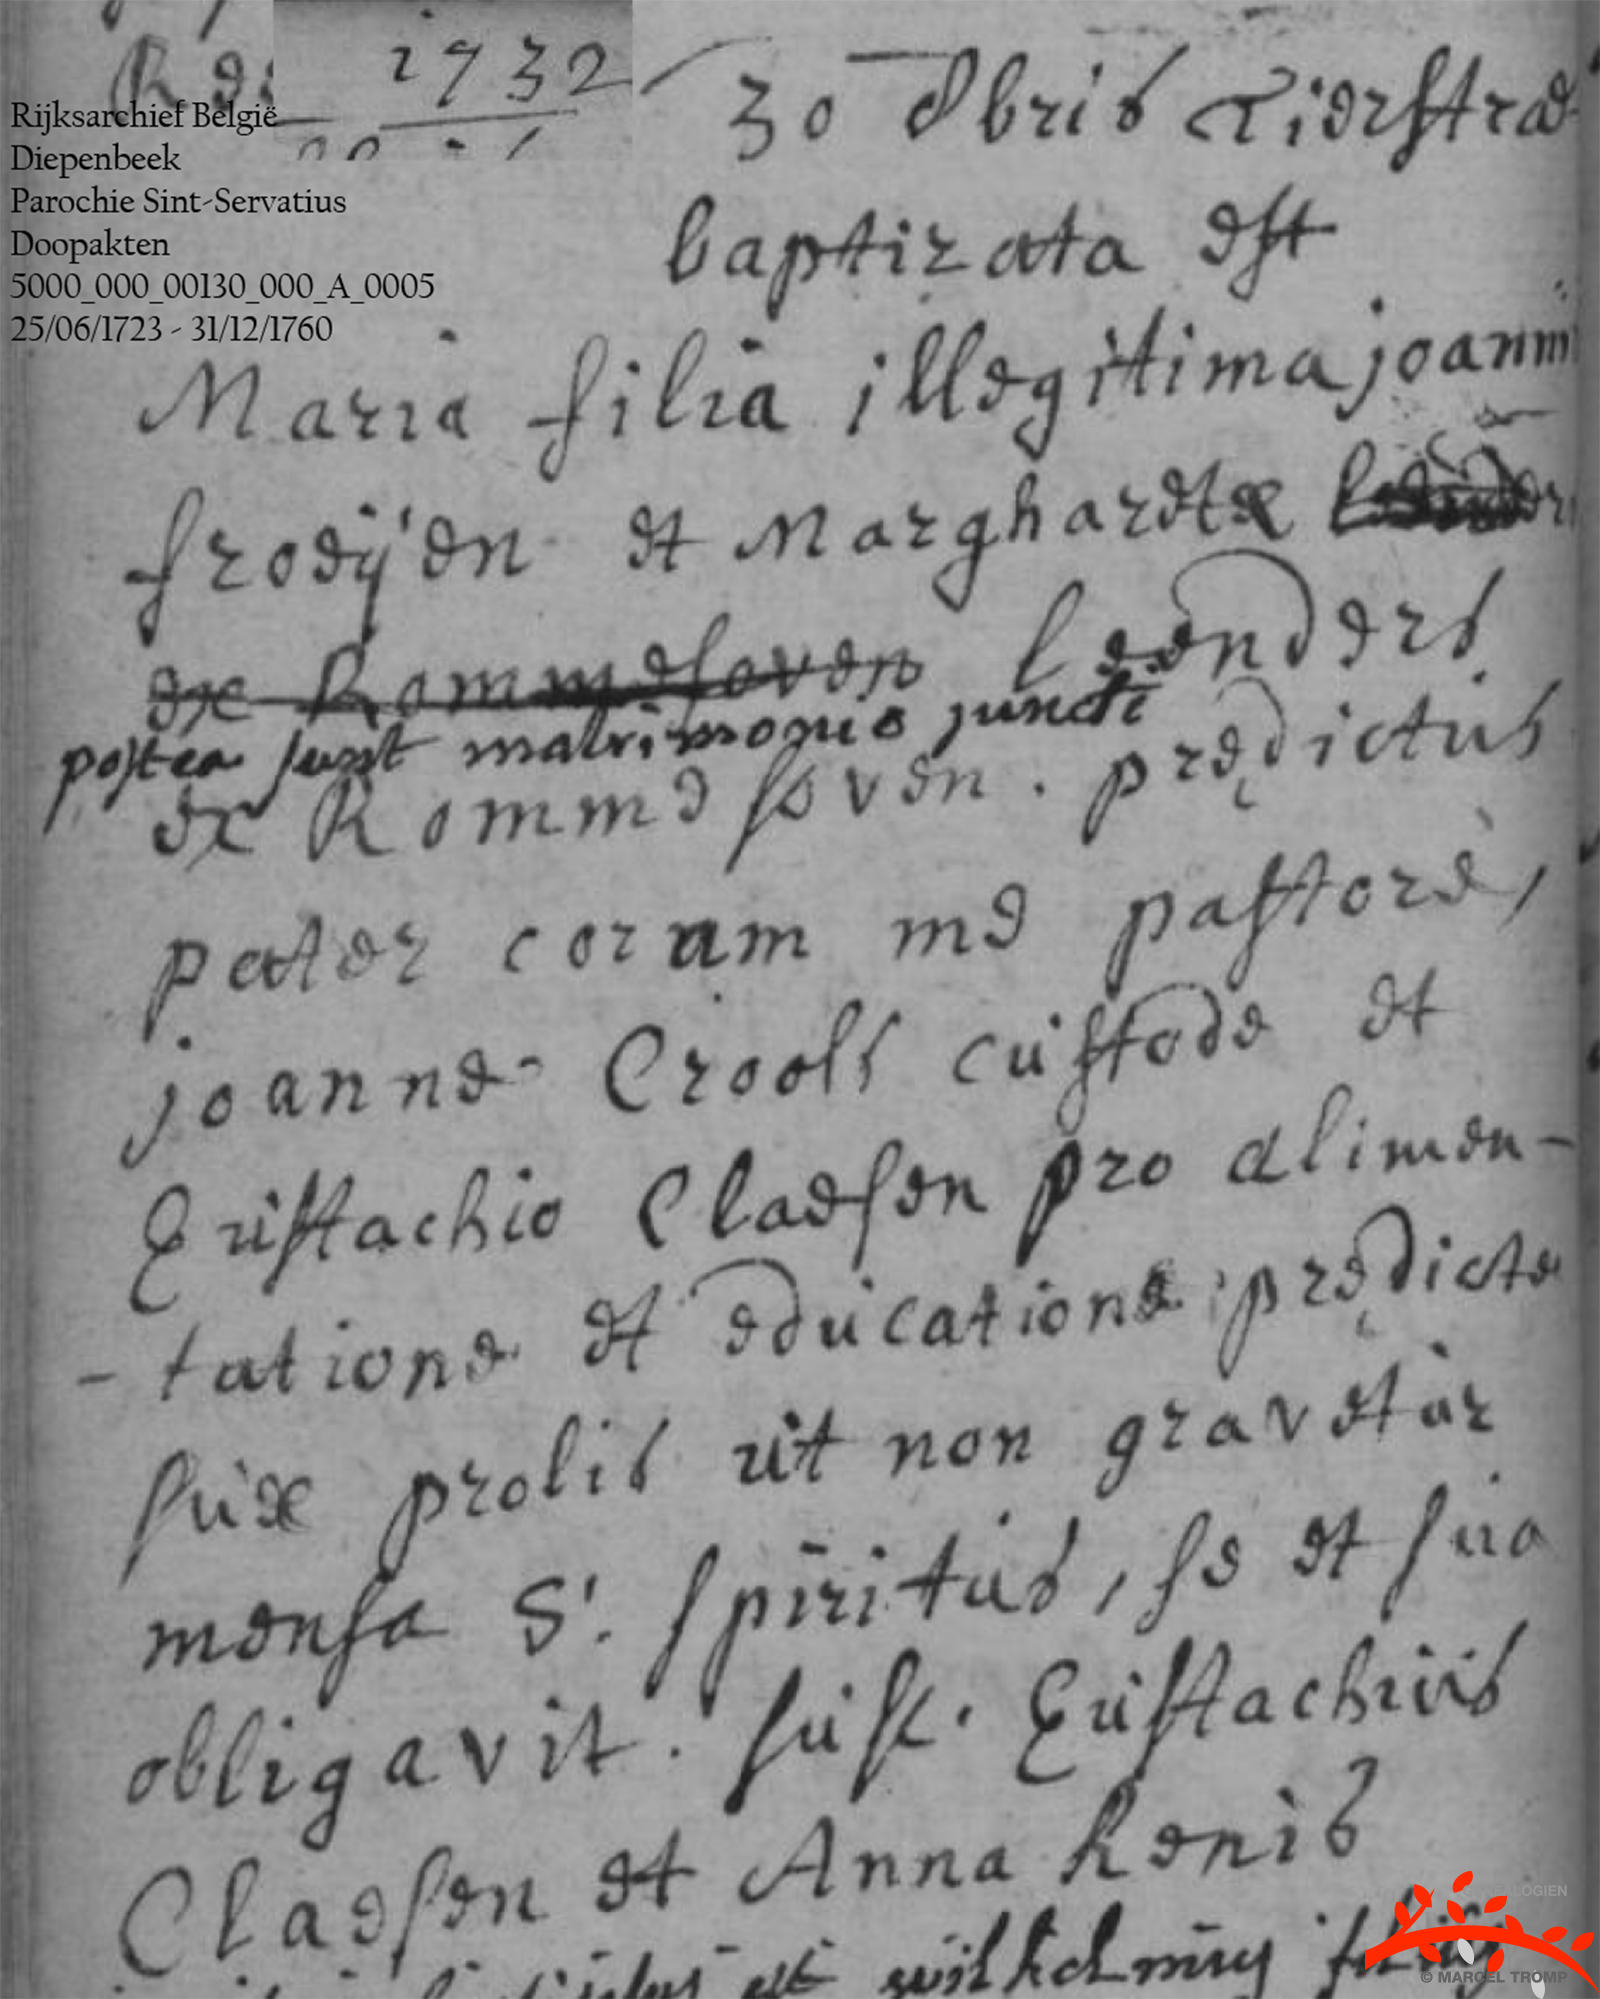 1732
30 Xbris Tierstraet
Rijksarchief België
Diepenbeek
Parochie Sint-Servatius
Doopakten
5000_000_00130_000_A_0005
25/06/1723 - 31/12/1760
baptizata est
Maria filia illegitima joanni
froeijen et Marghareta
ex Rommeloven Leenders
postea sunt matrimonio juncti
ex Rommesoven . prędictus
pater coram me pastore,
joanne Crools custode et
Eustachio Claesen pro alimen-
-tatione et educatione prędicte
suae prolis ut non gravetur
mensa St. spiritus, se et sua
obligavit . susc. Eustachius
Claesen et Anna Kenis
et
© MARCEL TROMP